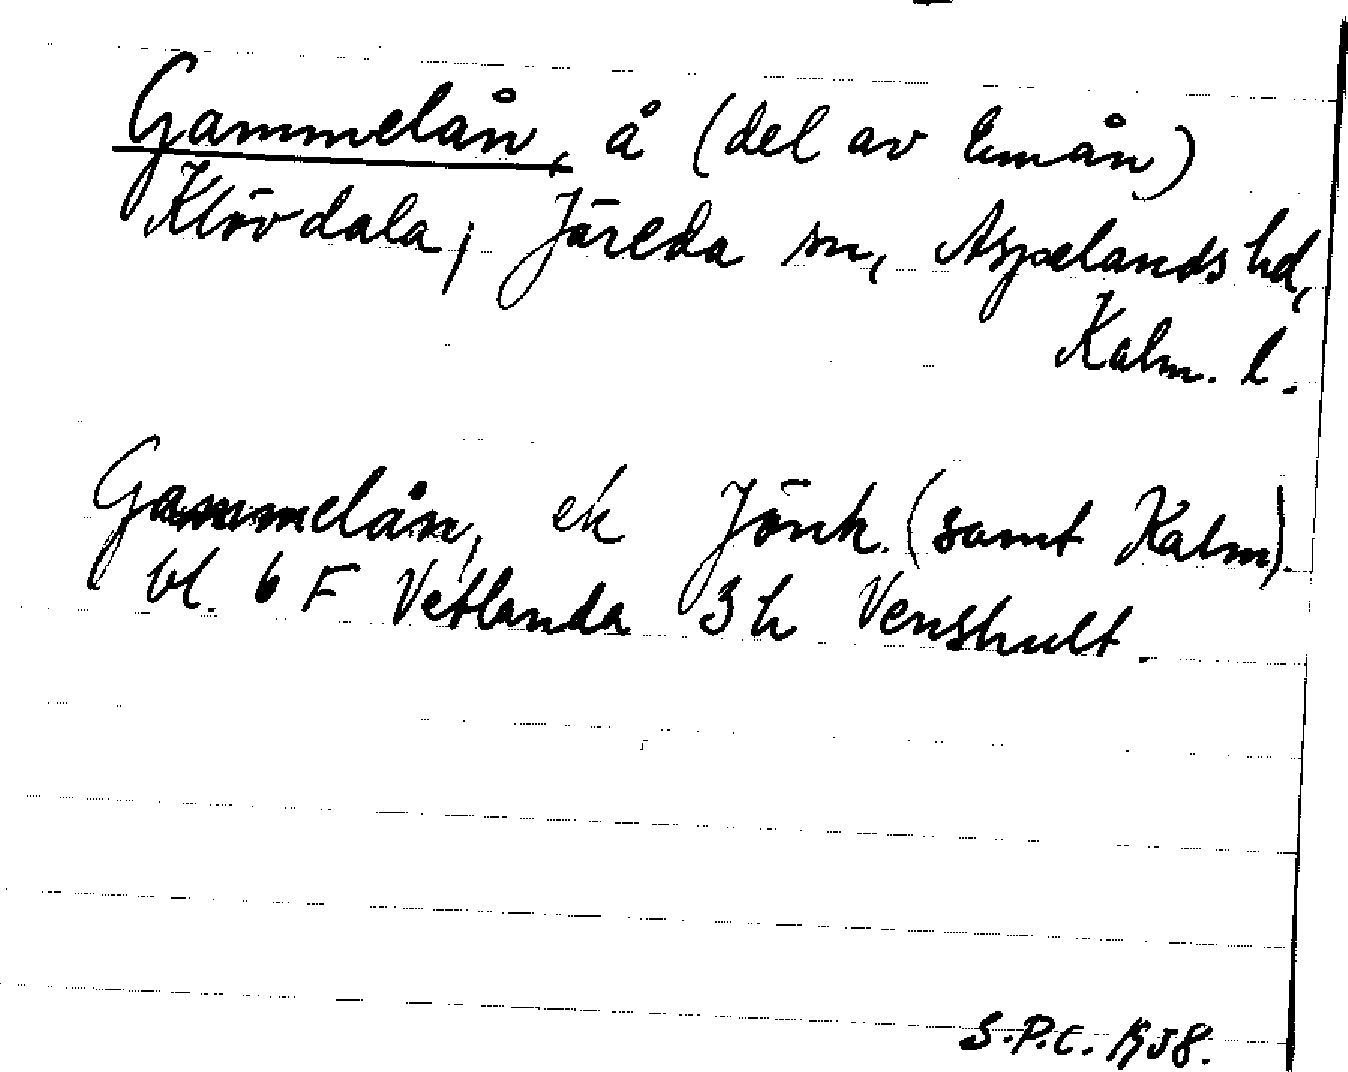 Gammelån, å (del av Emån)
Klövdala, Järeda sn, Aspelands hd,
Kalm. l.
Gammelån, ek Jönk. (samt Kalm).
bl. 6 F Vetlanda 3 h Venshult.
S.P.C. 1958.